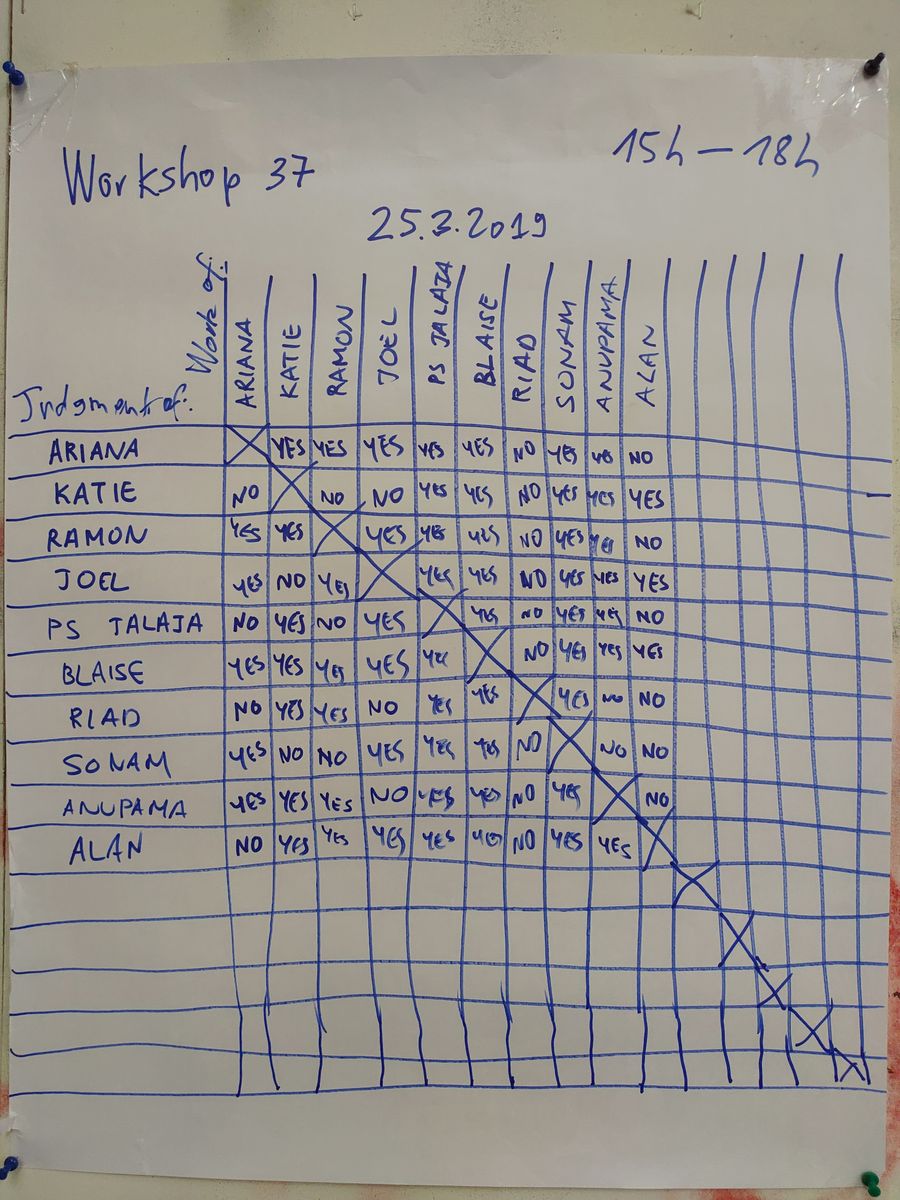 Workshop 37
15h – 18h
25.3.2019
Judgment of: Work of: ARIANA KATIE RAMON JOËL PS JALAJA BLAISE RIAD SONAM ANUPAMA ALAN
ARIANA YES YES YES YES YES NO YES YES NO
KATIE NO NO NO YES YES NO YES YES YES
RAMON YES YES YES YES YES NO YES YES NO
JOEL YES NO YES YES YES NO YES YES YES
PS JALAJA NO YES NO YES YES NO YES YES NO
BLAISE YES YES YES YES YES NO YES YES YES
RIAD NO YES YES NO YES YES YES NO NO
SONAM YES NO NO YES YES YES NO NO NO
ANUPAMA YES YES YES NO YES YES NO YES NO
ALAN NO YES YES YES YES YES NO YES YES